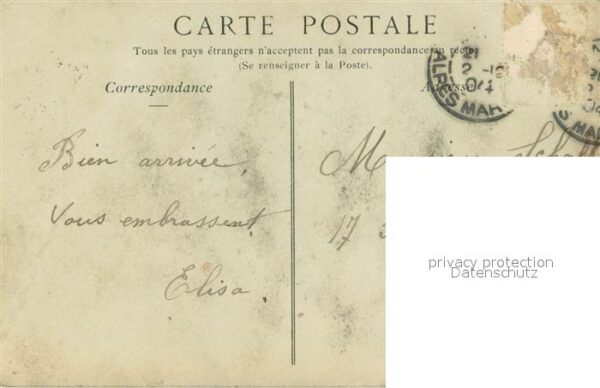 CARTE POSTALE
Tous les pays étrangers n'acceptent pas la correspondance au recto
(Se renseigner à la Poste).
Correspondance
Adresse
21
2 -12
04
ALPES MAR
Bien arrivée,
Vous embrassent
Elisa.
17
privacy protection
Datenschutz